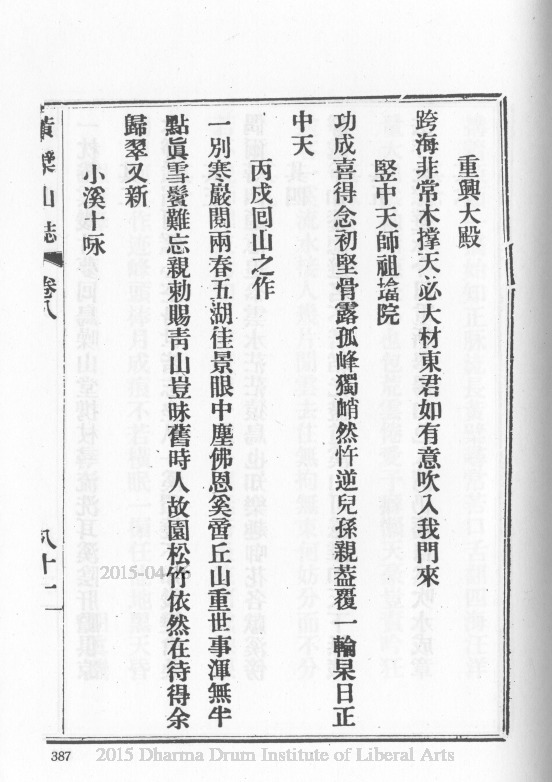 重興大殿
跨海非常木撐天必大材東君如有意吹入我門來
竪中天師祖墖院
功成喜得念初堅骨露孤峰獨峭然忤逆兒孫親葢覆一輪杲日正
中天
丙戍囘山之作
一別寒巖閱兩春五湖佳景眼中塵佛恩奚啻丘山重世事渾無半
點眞雪鬢難忘親勅賜靑山豈昧舊時人故園松竹依然在待得余
歸翠又新
小溪十咏
黃檗山誌 卷八 八十二
387
2015 Dharma Drum Institute of Liberal Arts